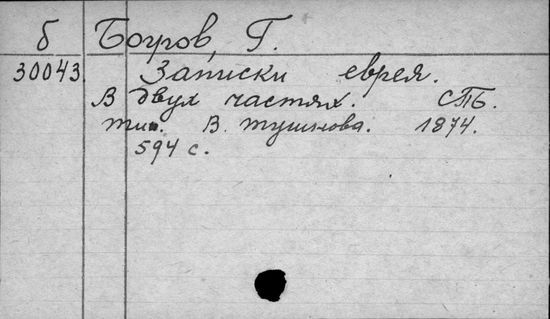 б Богров, Г.
30043. Записки еврея.
В двух частях. СПб.
тип. В. Тушнова. 1874.
594 с.